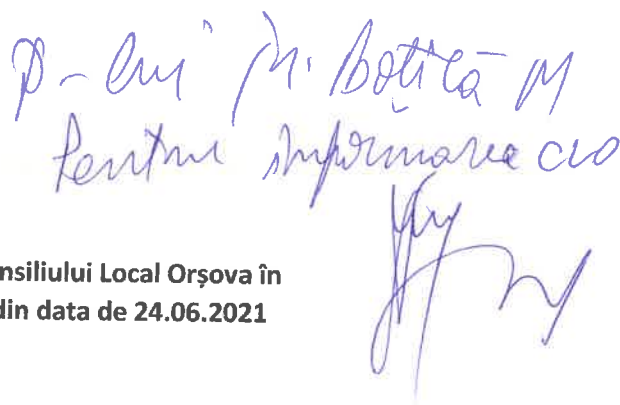 D-lui Jr. Botică M
Pentru informarea CLO
nsiliului Local Orșova în
din data de 24.06.2021